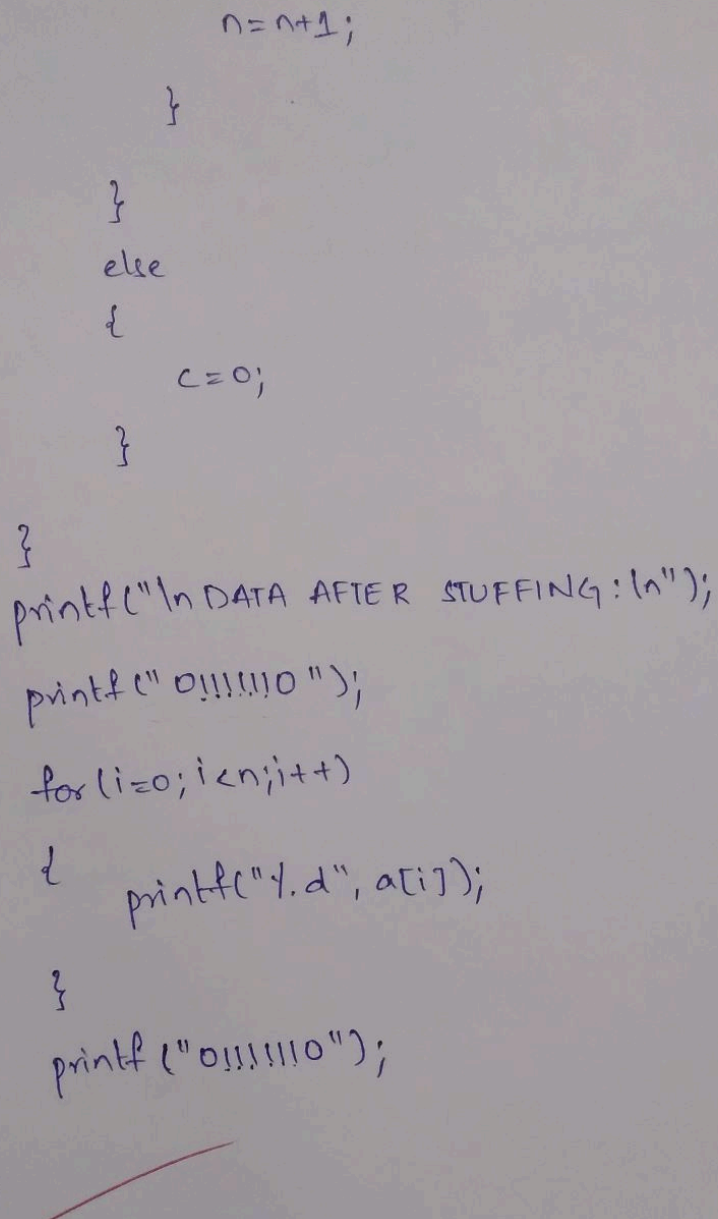 n=n+1;
}
}
else
{
c=0;
}
}
printf("\n DATA AFTER STUFFING:\n");
printf(" 0!!!!!!0 ");
for(i=0;i<n;i++)
{
printf("%d", a[i]);
}
printf("0!!!!!!0");